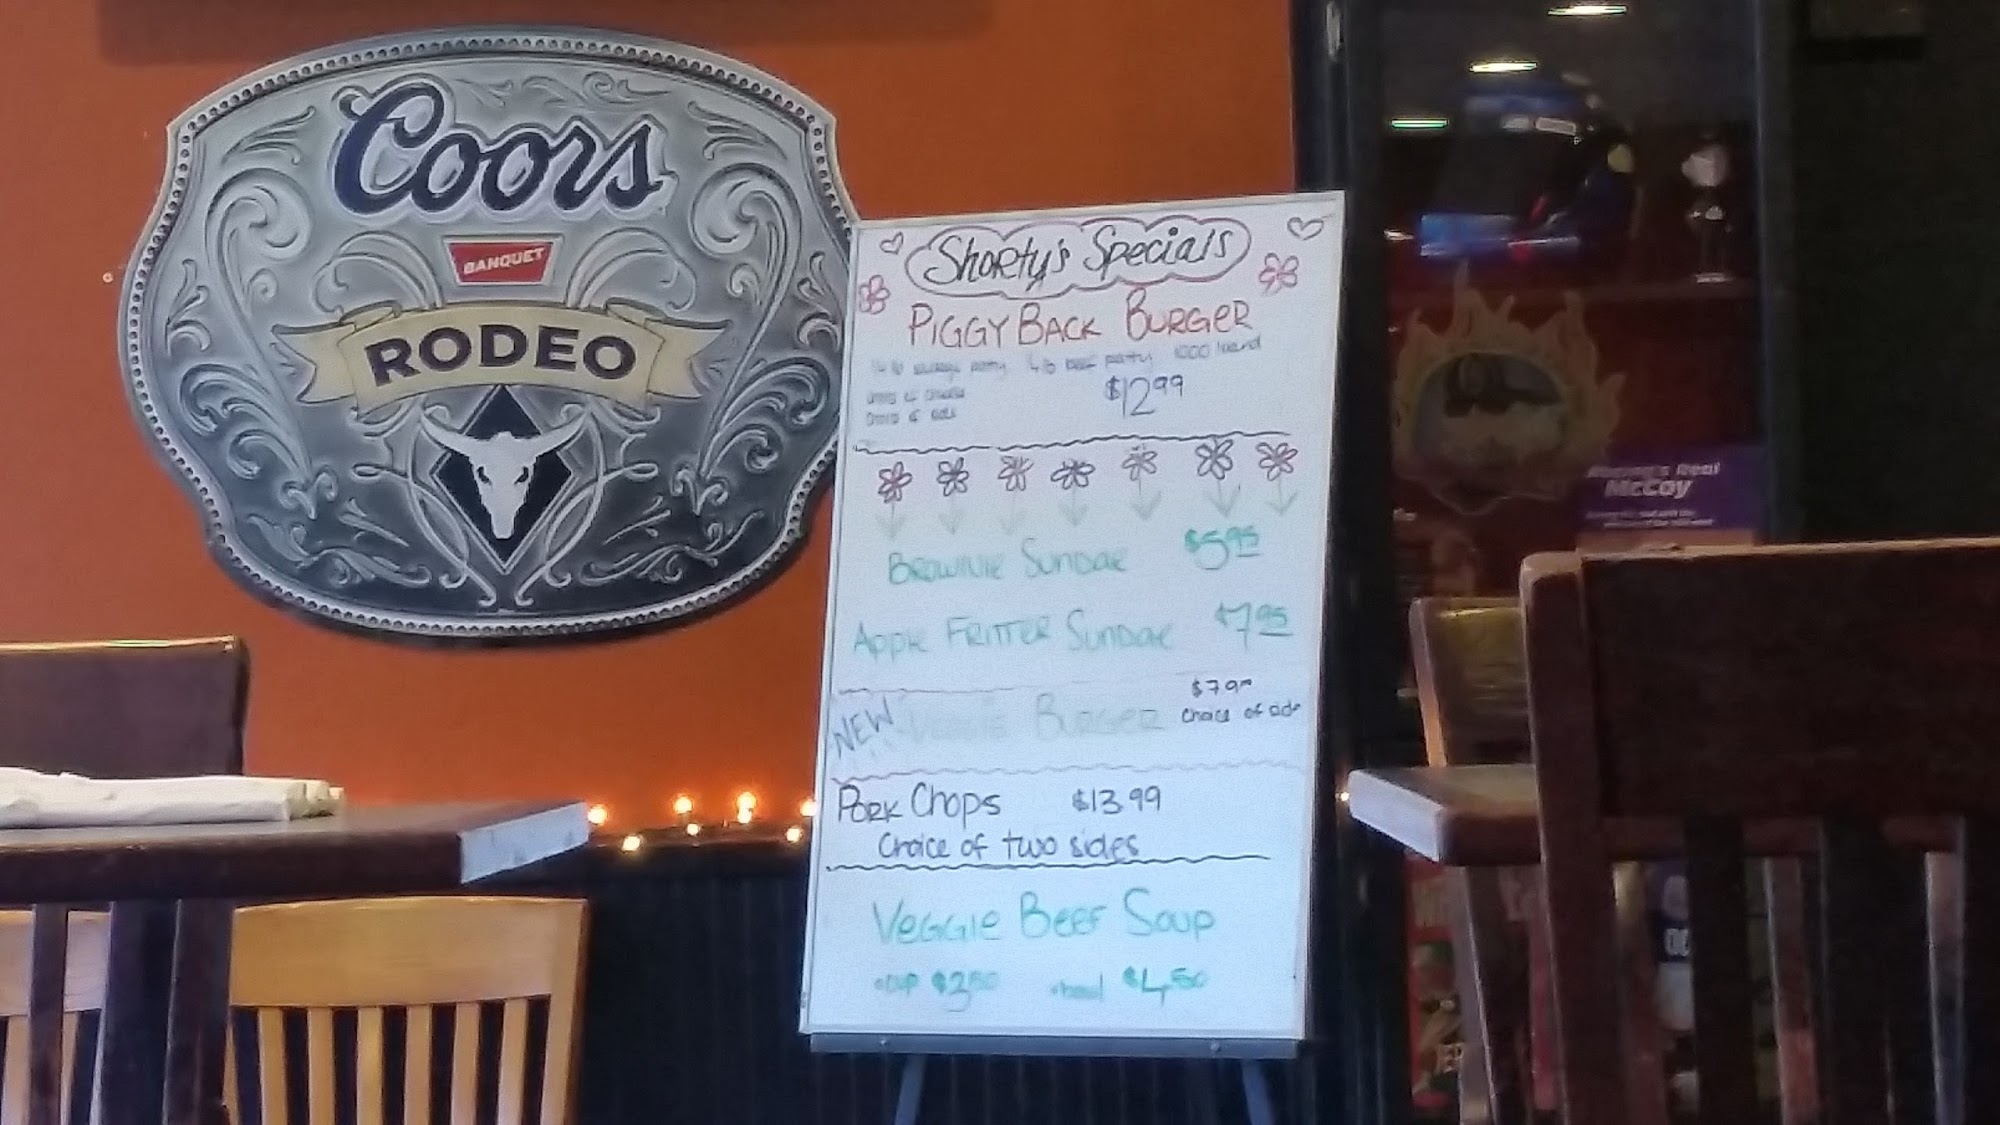 Coors
BANQUET
RODEO
Shorty's Specials
PIGGY BACK BURGER
1/4 lb sausage patty 1/4 lb beef patty
$12.99
choice of side
BROWNIE SUNDAE $5.95
APPLE FRITTER SUNDAE $7.95
NEW VEGGIE BURGER
choice of side
PORK CHOPS $13.99
Choice of two sides
VEGGIE BEEF SOUP
cup $3.50 bowl $4.50
Racing's Real
McCoy